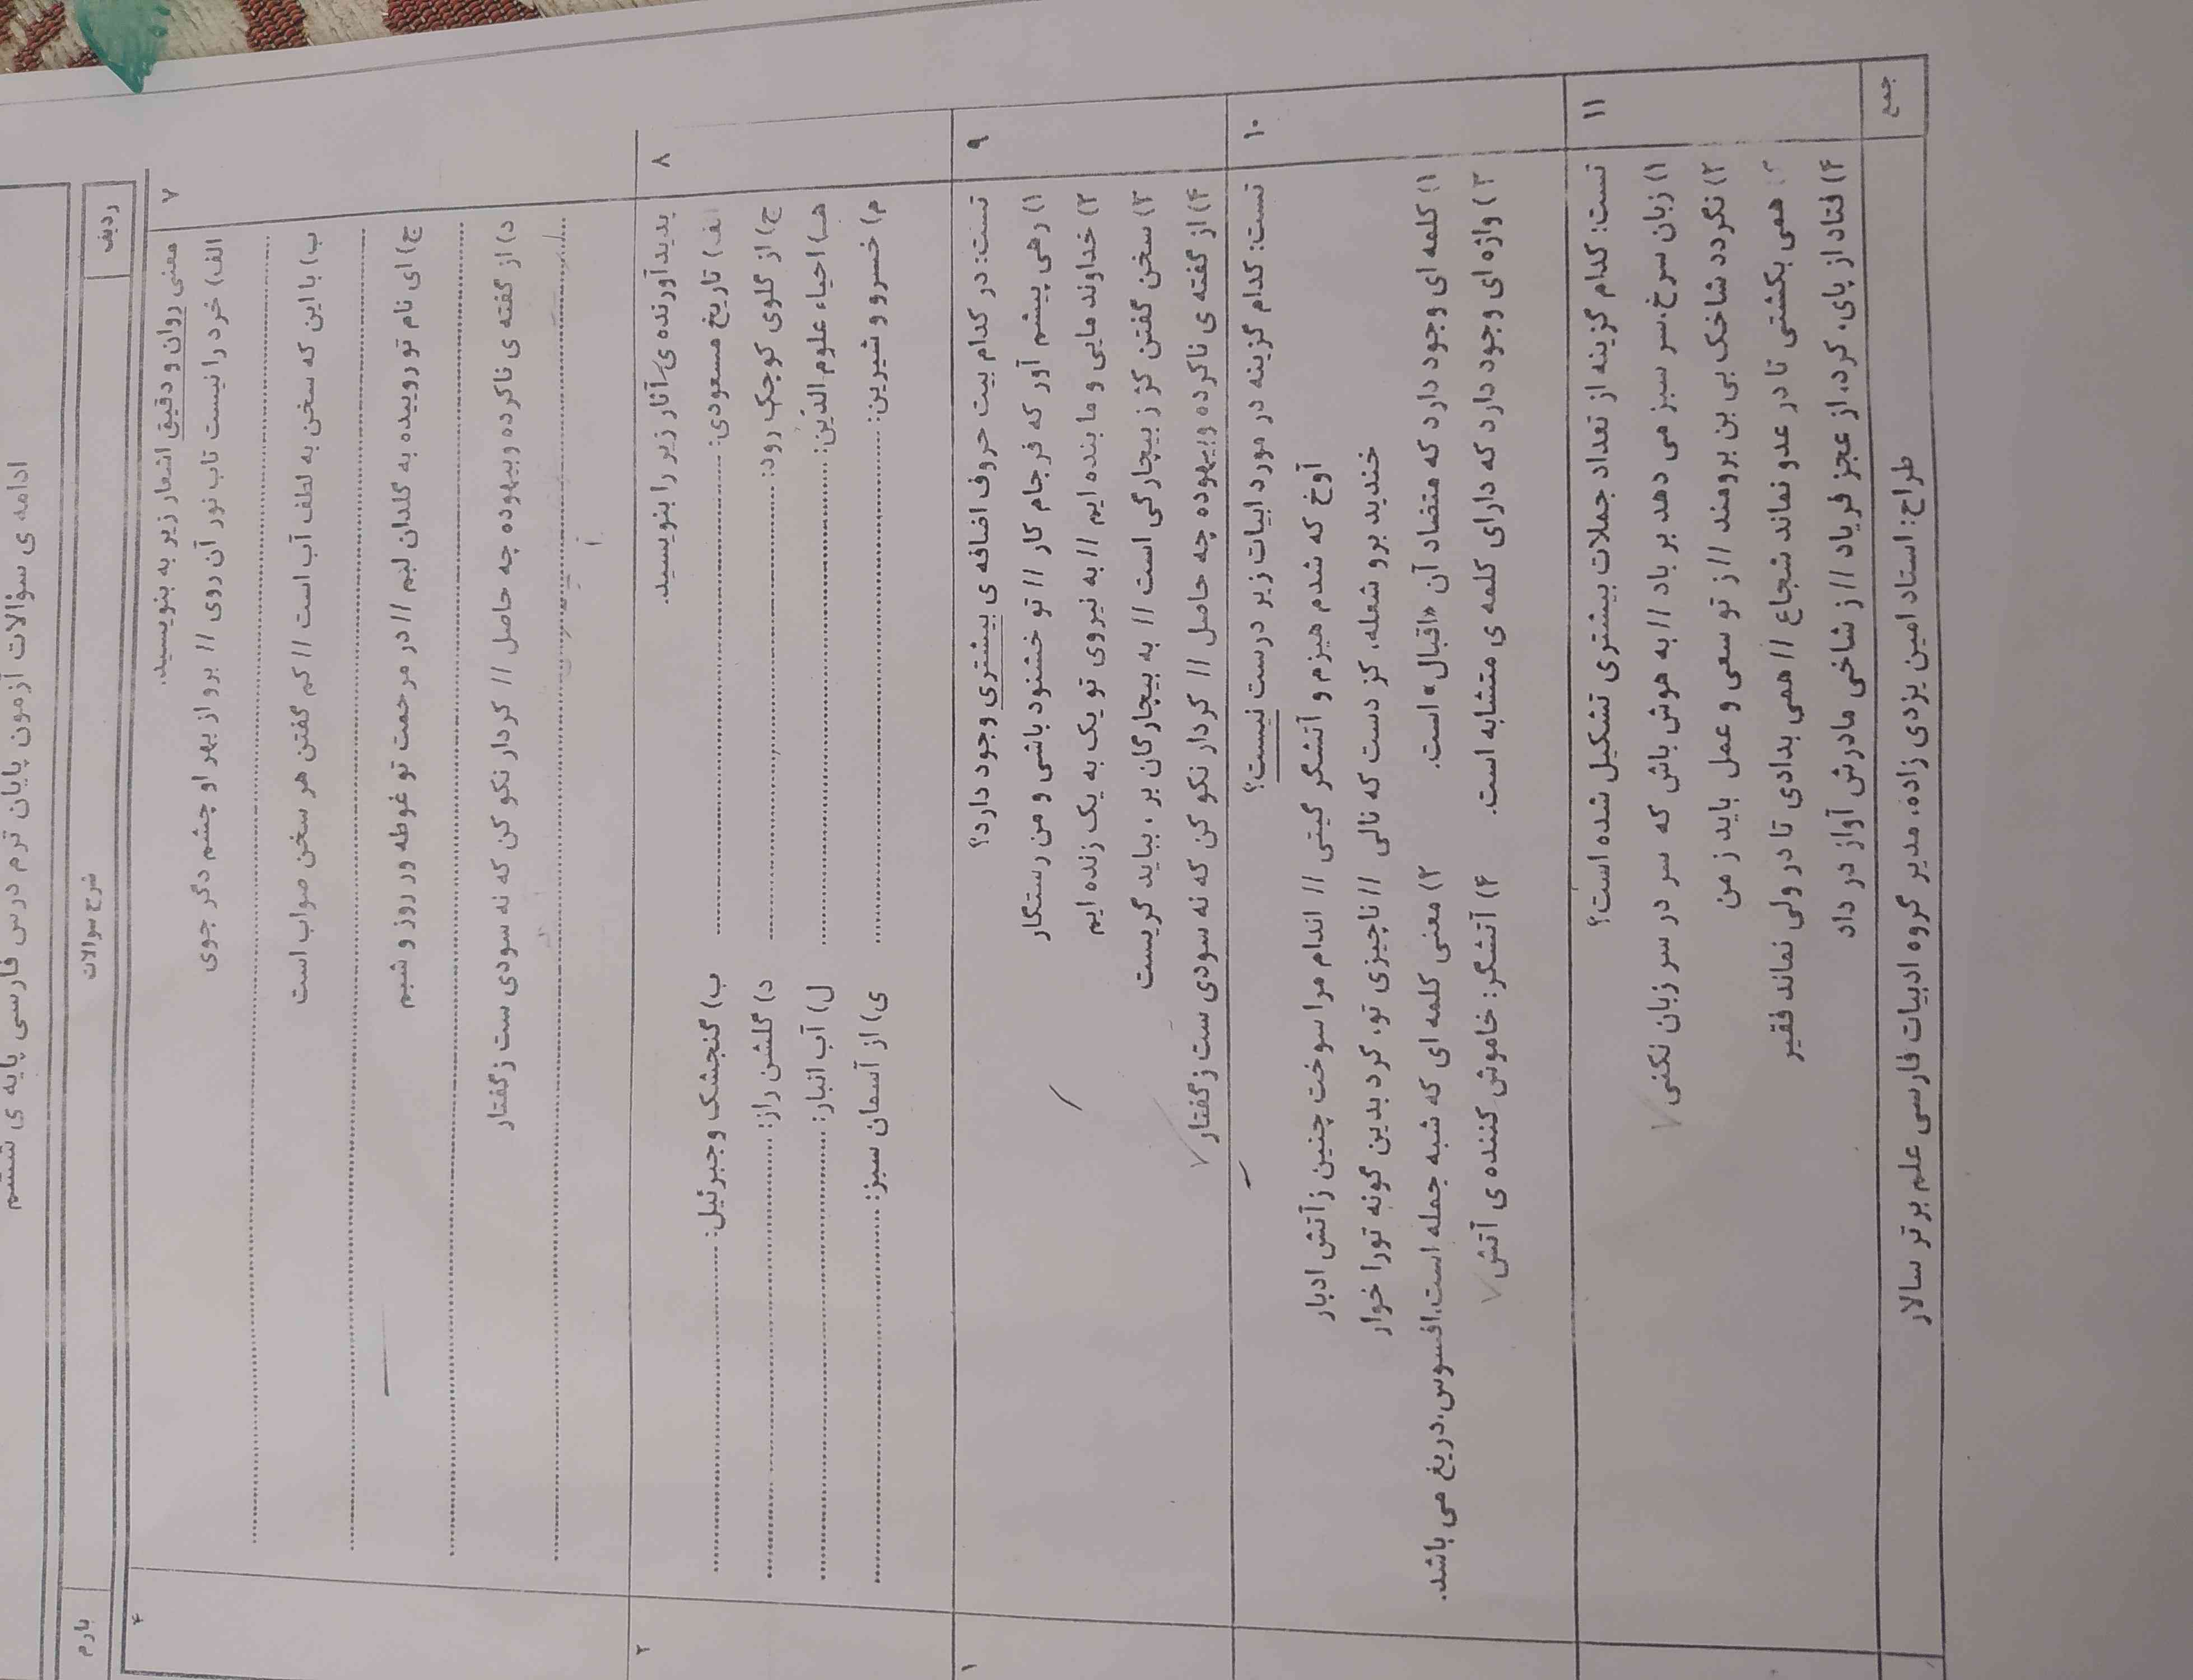 ادامه ی سؤالات آزمون پایان ترم درس فارسی پایه ی ششم
ردیف شرح سوالات بارم
۷ معنی روان و دقیق اشعار زیر به بنویسید. ۴
الف) خرد را نیست تاب نور آن روی // برو از بهر او چشم دگر جوی
ب) با این که سخن به لطف آب است // کم گفتن هر سخن صواب است
ج) ای نام تو روییده به گلدان لبم // در مرحمت تو غوطه ور روز و شبم
د) از گفته ی ناکرده و بیهوده چه حاصل // کردار نکو کن که نه سودی ست ز گفتار
۸ پدیدآورنده ی آثار زیر را بنویسید. ۲
الف) تاریخ مسعودی: ب) گنجشک و جبرئیل:
ج) از گلوی کوچک رود: د) گلشن راز:
هـ) احیاء علوم الدّین: ل) آب انبار:
م) خسرو و شیرین: ی) از آسمان سبز:
۹ تست: در کدام بیت حروف اضافه ی بیشتری وجود دارد؟ ۱
۱) رهی پیشم آور که فرجام کار // تو خشنود باشی و من رستگار
۲) خداوند مایی و ما بنده ایم // به نیروی تو یک به یک زنده ایم
۳) سخن گفتن کژ ز بیچارگی است // به بیچارگان بر، بباید گریست
۴) از گفته ی ناکرده و بیهوده چه حاصل // کردار نکو کن که نه سودی ست ز گفتار
۱۰ تست: کدام گزینه در مورد ابیات زیر درست نیست؟
آوخ که شدم هیزم و آتشگر گیتی // اندام مرا سوخت چنین ز آتش ادبار
خندید برو شعله، کز دست که نالی // ناچیزی تو، کرد بدین گونه تو را خوار
۱) کلمه ای وجود دارد که متضاد آن «اقبال» است. ۲) معنی کلمه ای که شبه جمله است، افسوس، دریغ می باشد.
۳) واژه ای وجود دارد که دارای کلمه ی متشابه است. ۴) آتشگر: خاموش کننده ی آتش
۱۱ تست: کدام گزینه از تعداد جملات بیشتری تشکیل شده است؟
۱) زبان سرخ، سر سبز می دهد بر باد // به هوش باش که سر در سر زبان نکنی
۲) نگردد شاخک بی بن برومند // ز تو سعی و عمل باید ز من
۳) همی بکشتی تا در عدو نماند شجاع // همی بدادی تا در ولی نماند فقیر
۴) فتاد از پای، کرد، از عجز فریاد // ز شاخی مادرش آواز در داد
جمع طراح: استاد امین یزدی زاده، مدیر گروه ادبیات فارسی علم برتر سالار